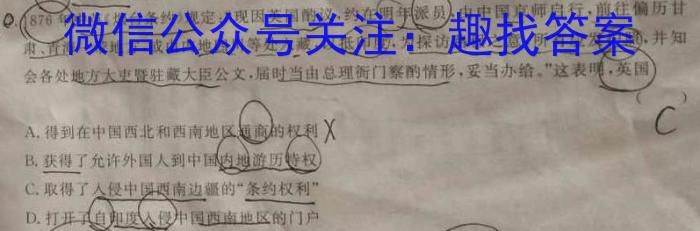 1876年 条约规定:"现因英国酌议,约在明年派员,由中国京师启行,前往偏历甘
肃、青海
微信公众号关注:趣找答案
会各处地方大吏暨驻藏大臣公文,届时当由总理衙门察酌情形,妥当办给。"这表明,英国
(C)
A. 得到在中国西北和西南地区通商的权利 X
B. 获得了允许外国人到中国内地游历特权
C. 取得了入侵中国西南边疆的"条约权利"
D. 打开了自印度入侵中国西南地区的门户